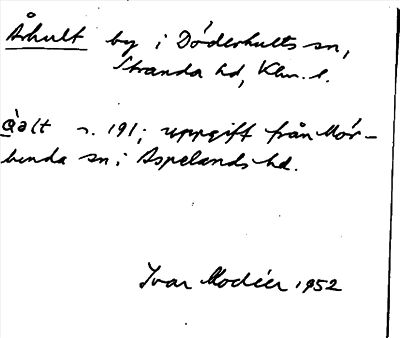 Århult by i Döderhults sn,
Stranda hd, Klm. l.
å̀əlt s. 191; uppgift från Mör-
lunda sn i Aspelands hd.
Ivar Modéer 1952